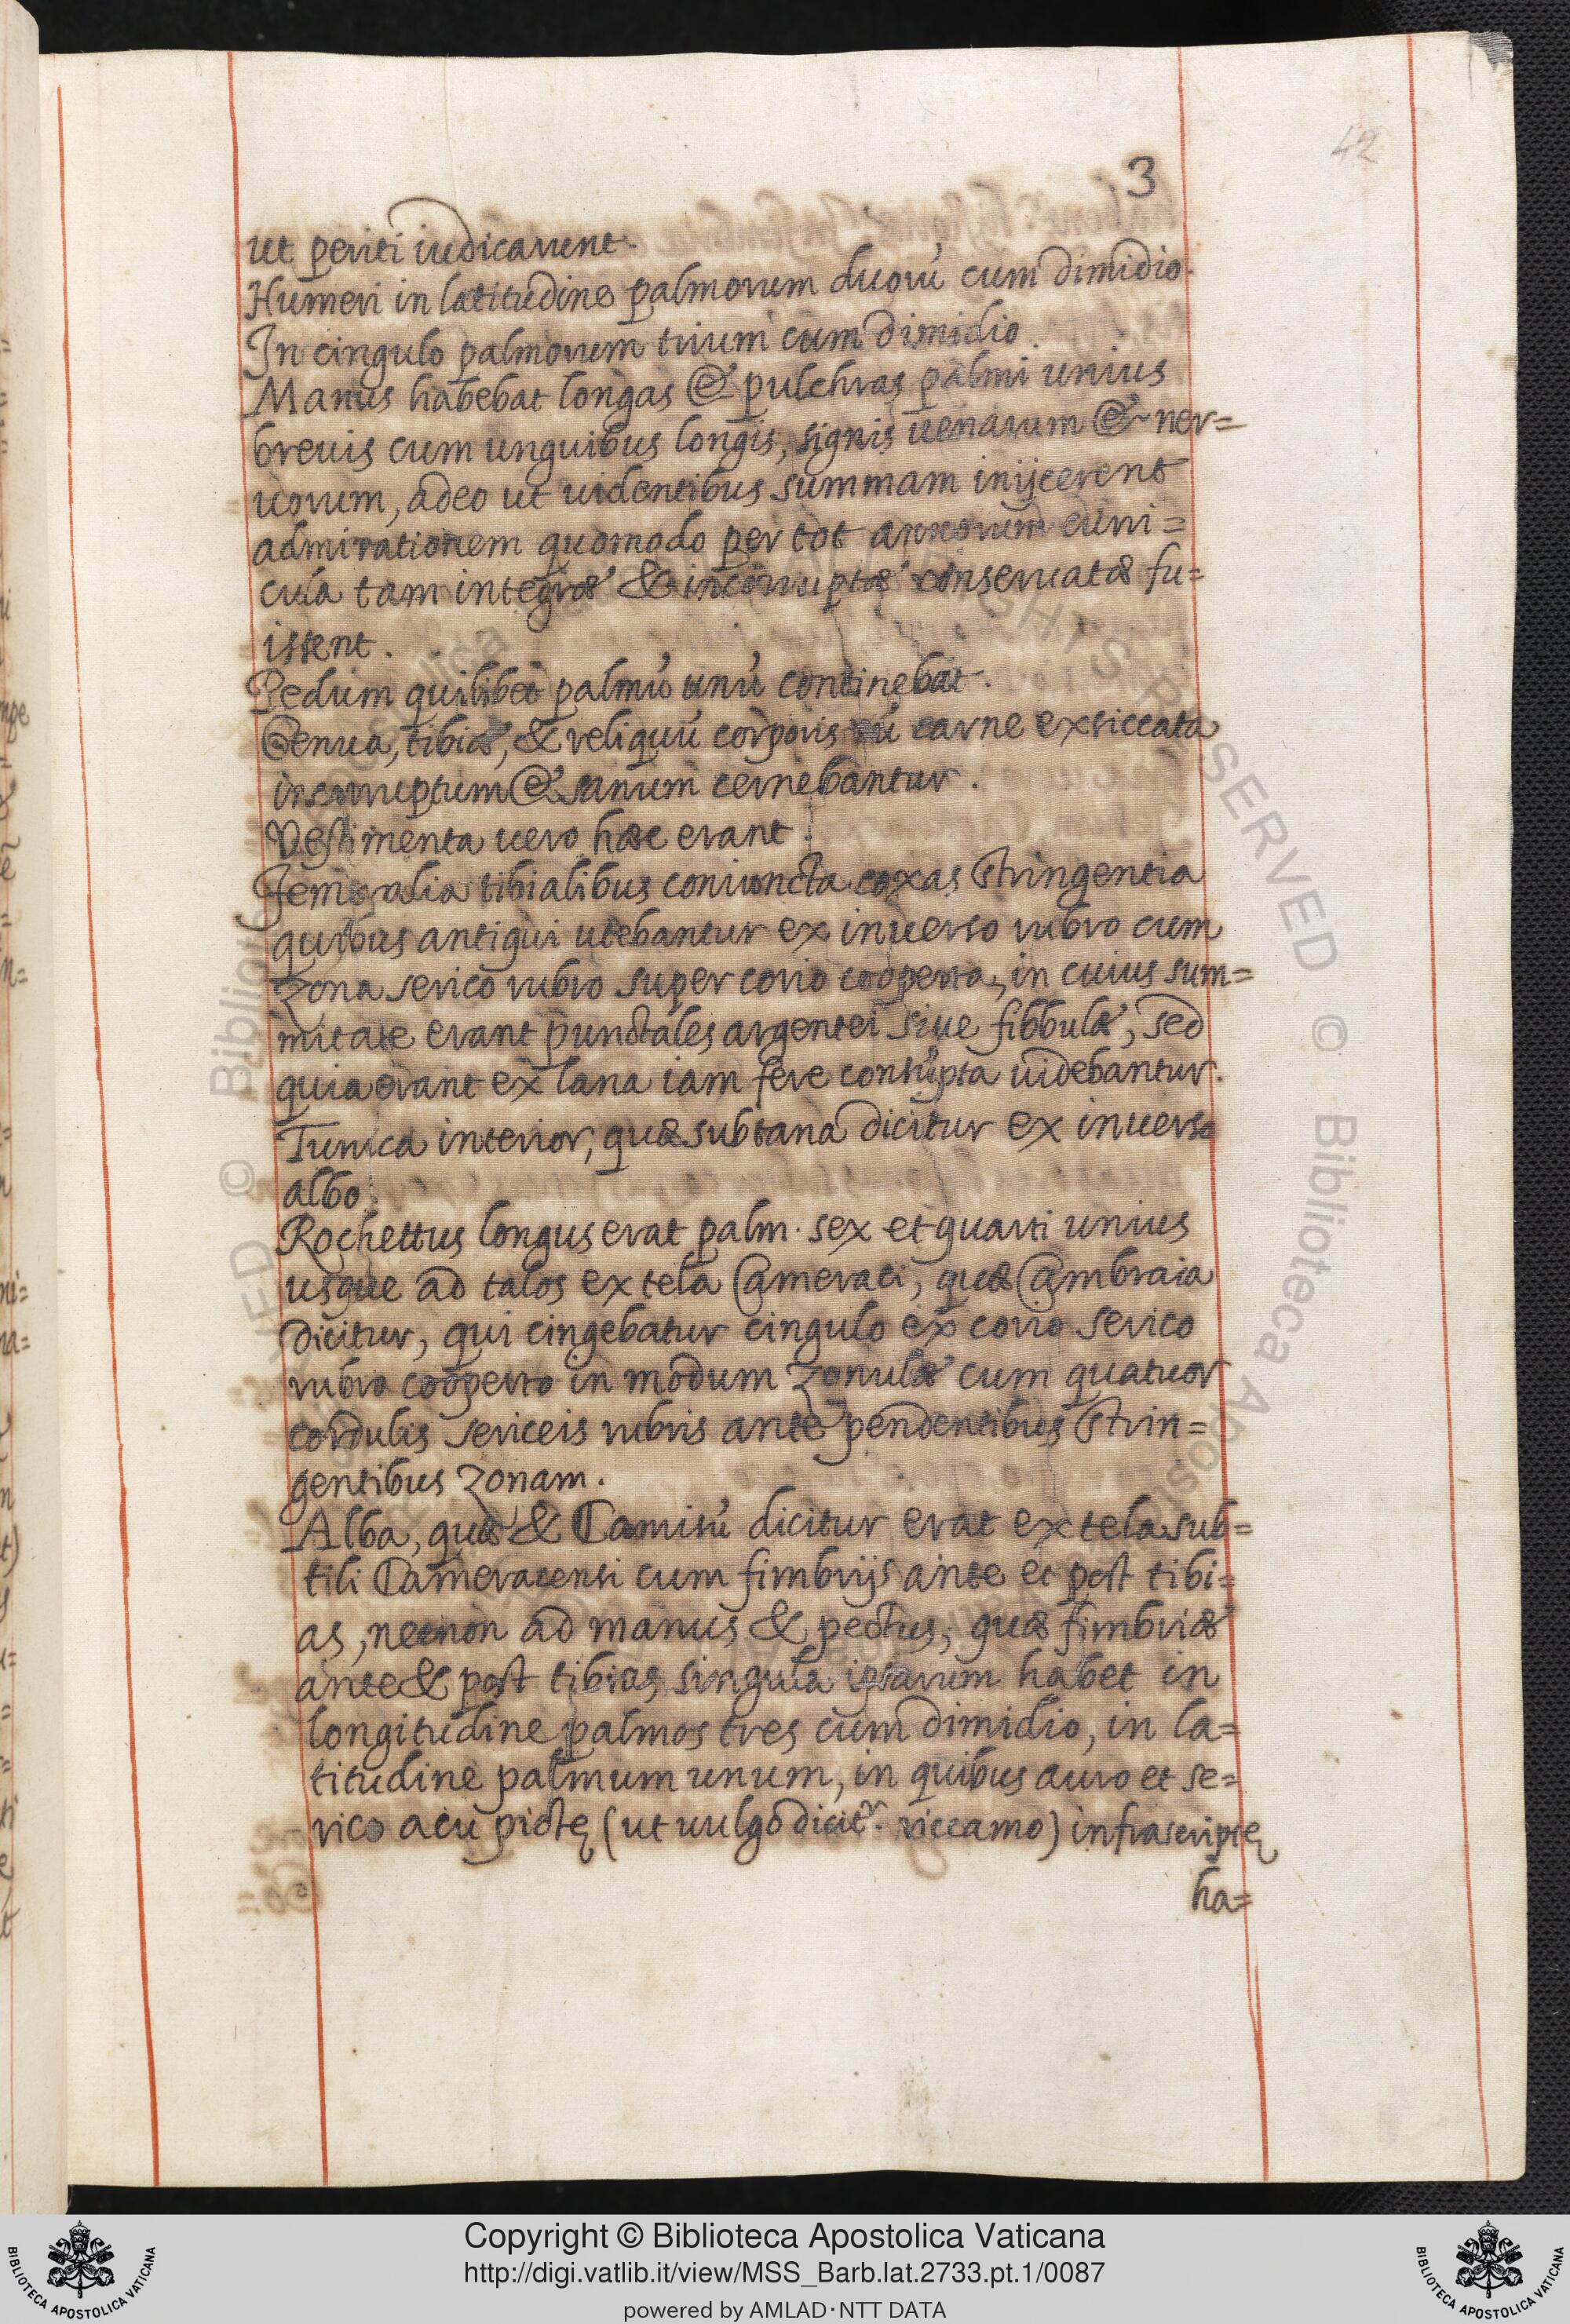 42
3
ut periti iudicarunt.
Humeri in latitudine palmorum duorú cum dimidio.
In cingulo palmorum trium cum dimidio.
Manus habebat longas & pulchras palmi unius
breuis cum unguibus longis, signis uenarum & ner=
uorum, adeo ut uidentibus summam inijcerent
admirationem quomodo per tot annorum curri=
cula tam integræ & incorruptæ conseruatæ fu=
issent.
Pedum quilibet palmú unú continebat.
Genua, tibiæ, & reliquú corporis cú carne exsiccata
incorruptum & sanum cernebantur.
Vestimenta uero hæc erant.
Femoralia tibialibus coniuncta coxas stringentia
quibus antiqui utebantur ex inuerso rubro cum
zona serico rubro super corio cooperta, in cuius sum=
mitate erant punctales argentei siue fibbulæ, sed
quia erant ex lana iam fere consúpta uidebantur.
Tunica interior, quæ subtana dicitur ex inuerso
albo.
Rochettus longus erat palm. sex et quarti unius
usque ad talos ex tela Cameraci, quæ Cambraia
dicitur, qui cingebatur cingulo ex corio serico
rubro cooperto in modum zonulæ cum quatuor
cordulis sericeis rubris ante pendentibus strin=
gentibus zonam.
Alba, quæ & Camisú dicitur erat ex tela sub=
tili Cameracensi cum fimbrijs ante et post tibi=
as, necnon ad manus & pectus, quæ fimbriæ
ante & post tibias singula ipsarum habet in
longitudine palmos tres cum dimidio, in la=
titudine palmum unum, in quibus auro et se=
rico acu pictę (ut uulgo dicitr. riccamo) infrascriptę
ha=
Copyright © Biblioteca Apostolica Vaticana
http://digi.vatlib.it/view/MSS_Barb.lat.2733.pt.1/0087
powered by AMLAD·NTT DATA
BIBLIOTECA APOSTOLICA VATICANA
BIBLIOTECA APOSTOLICA VATICANA